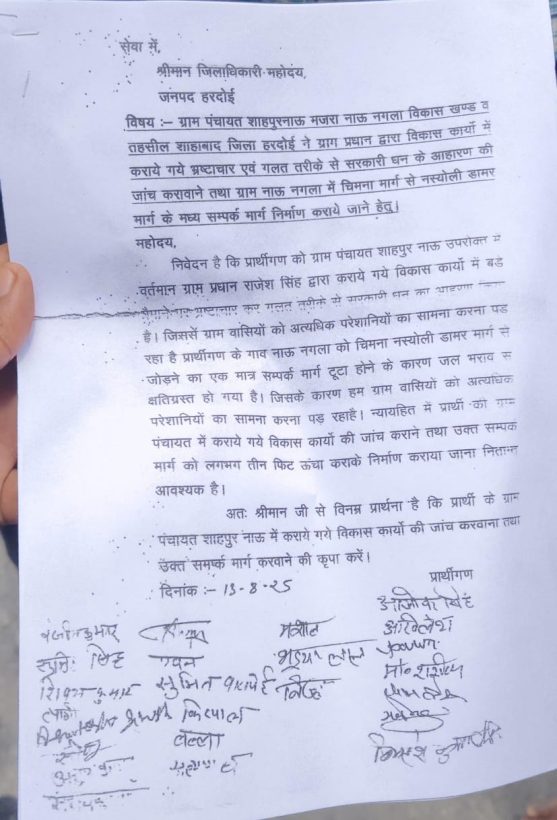 सेवा में,
श्रीमान जिलाधिकारी महोदय,
जनपद हरदोई
विषय :– ग्राम पंचायत शाहपुरनाऊ मजरा नाऊ नगला विकास खण्ड व
तहसील शाहाबाद जिला हरदोई ने ग्राग प्रधान द्वारा विकास कार्यो में
कराये गये भ्रष्टाचार एवं गलत तरीके से सरकारी धन के आहारण की
जांच करावाने तथा ग्राम नाऊ नगला में चिमना मार्ग से नस्योली डामर
मार्ग के मध्य सम्पर्क मार्ग निर्माण कराये जाने हेतु।
महोदय,
निवेदन है कि प्रार्थीगण को ग्राम पंचायत शाहपुर नाऊ उपरोक्त में
वर्तमान ग्राम प्रधान राजेश सिंह द्वारा कराये गये विकास कार्यो में बडे
पैमाने पर भ्रष्टाचार कर गलत तरीके से सरकारी धन का आहरण किया
है। जिससें ग्राम वासियों को अत्यधिक परेशानियों का सामना करना पड
रहा है प्रार्थीगण के गाव नाऊ नगला को चिमना नस्योली डामर मार्ग से
जोड़ने का एक मात्र सम्पर्क मार्ग टूटा होने के कारण जल भराव से
क्षतिग्रस्त हो गया है। जिसके कारण हम ग्राम वासियों को अत्यधिक
परेशानियों का सामना करना पड़ रहाहै। न्यायहित में प्रार्थी की ग्राम
पंचायत में कराये गये विकास कार्यो की जांच कराने तथा उक्त सम्पक
मार्ग को लगभग तीन फिट ऊंचा कराके निर्माण कराया जाना नितान्त
आवश्यक है।
अतः श्रीमान जी से विनम्र प्रार्थना है कि प्रार्थी के ग्राम
पंचायत शाहपुर नाऊ में कराये गये विकास कार्यो की जांच करवाना तथा
उक्त समर्ष्क मार्ग करवाने की कृपा करें।
दिनांक :– 13-8-25
प्रार्थीगण
अखिलेश
शिवम कुमार सुमित
लल्ला